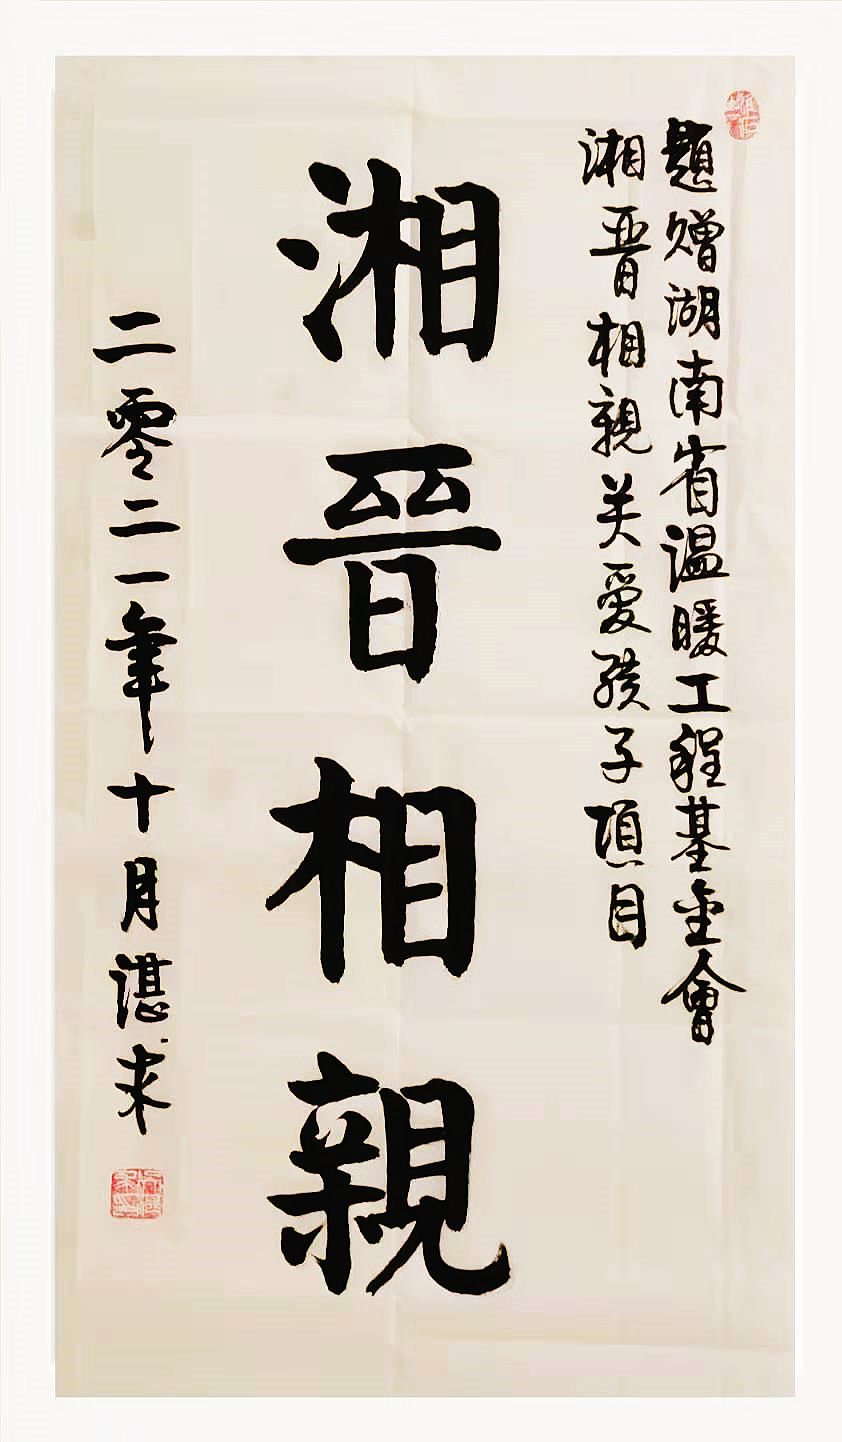 題贈湖南省温暖工程基金會
湘晋相親关爱孩子項目
湘晋相親
二零二一年十月湛求